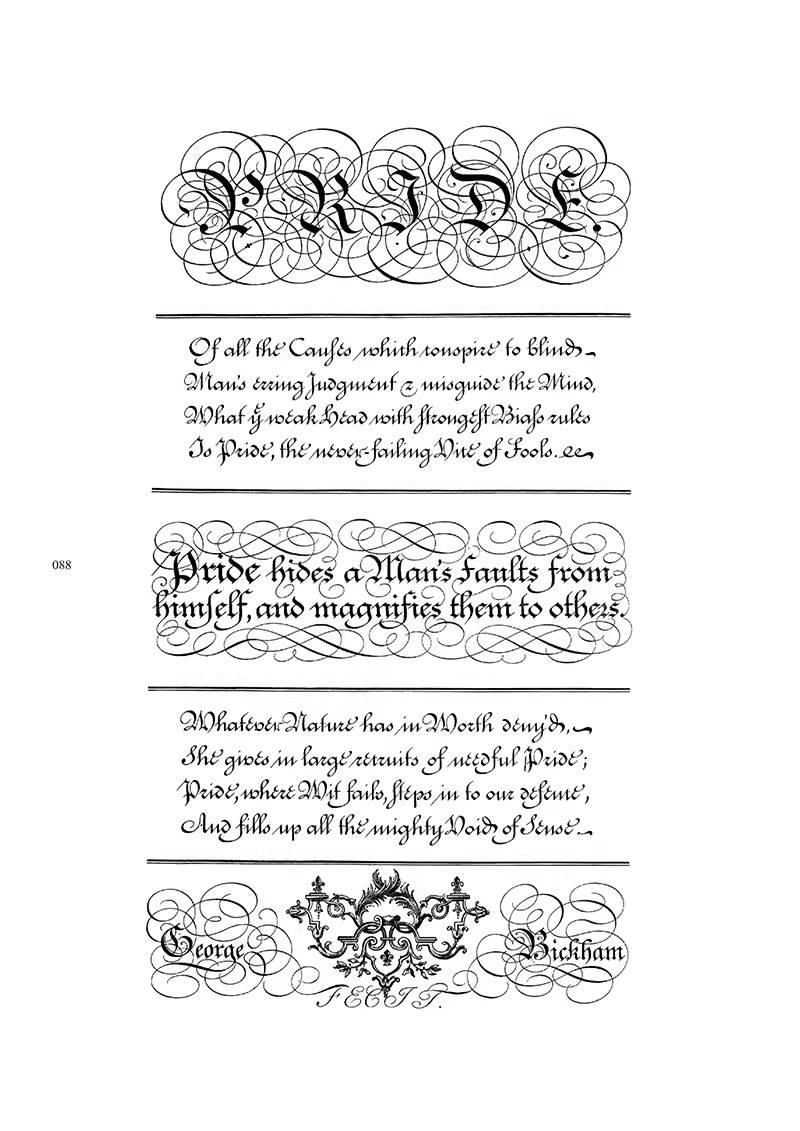 PRIDE.
Of all the Causes which conspire to blind
Man's erring Judgment & misguide the Mind,
What yͤ weak Head with strongest Biass rules
Is Pride, the never-failing Vice of Fools.
088
Pride hides a Man's Faults from
himself, and magnifies them to others.
Whatever Nature has in Worth deny'd,
She gives in large recruits of needful Pride;
Pride, where Wit fails, steps in to our defence,
And fills up all the mighty Void of Sense.
George Bickham
FECIT.